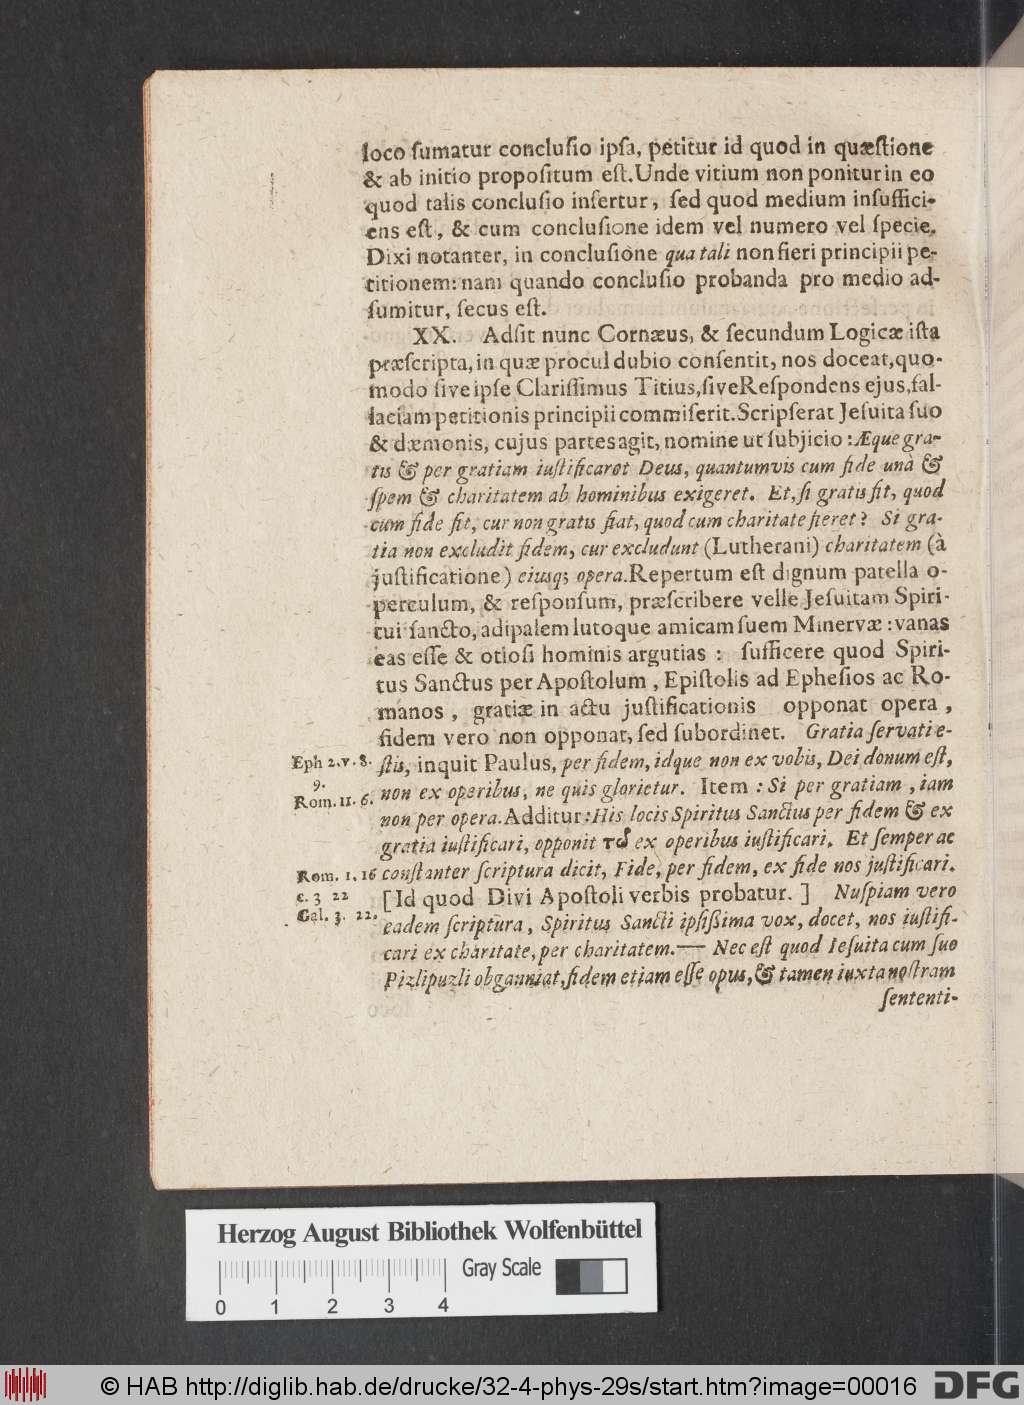 loco ſumatur concluſio ipſa, petitur id quod in quæſtione
& ab initio propoſitum eſt. Unde vitium non ponitur in eo
quod talis concluſio infertur, ſed quod medium inſuffici-
ens eſt, & cum concluſione idem vel numero vel ſpecie.
Dixi notanter, in concluſione qua tali non fieri principii pe-
titionem: nam quando concluſio probanda pro medio ad-
ſumitur, ſecus eſt.
XX. Adſit nunc Cornæus, & ſecundum Logicæ iſta
præſcripta, in quæ procul dubio conſentit, nos doceat, quo-
modo ſive ipſe Clariſſimus Titius, ſive Reſpondens ejus, fal-
laciam petitionis principii commiſerit. Scripſerat Jeſuita ſuo
& dæmonis, cujus partes agit, nomine ut ſubjicio: Æque gra-
tis & per gratiam iuſtificaret Deus, quantumvis cum fide unà &
ſpem & charitatem ab hominibus exigeret. Et, ſi gratis fit, quod
cum fide fit, cur non gratis fiat, quod cum charitate fieret? Si gra-
tia non excludit fidem, cur excludunt (Lutherani) charitatem (à
juſtificatione) eiusq; opera. Repertum eſt dignum patella o-
perculum, & reſponſum, præſcribere velle Jeſuitam Spiri-
tui ſancto, adipalem lutoque amicam ſuem Minervæ: vanas
eas eſſe & otioſi hominis argutias: ſufficere quod Spiri-
tus Sanctus per Apoſtolum, Epiſtolis ad Epheſios ac Ro-
manos, gratiæ in actu juſtificationis opponat opera,
fidem vero non opponat, ſed ſubordinet. Gratia ſervati e-
Eph 2. v. 8. ſtis, inquit Paulus, per fidem, idque non ex vobis, Dei donum eſt,
9.
Rom. 11. 6. non ex operibus, ne quis glorietur. Item: Si per gratiam, iam
non per opera. Additur: His locis Spiritus Sanctus per fidem & ex
gratia iuſtificari, opponit τῷ ex operibus iuſtificari. Et ſemper ac
Rom. 1. 16 conſtanter ſcriptura dicit, Fide, per fidem, ex fide nos juſtificari.
c. 3 22 [Id quod Divi Apoſtoli verbis probatur.] Nuſpiam vero
Gal. 3. 22. eadem ſcriptura, Spiritus Sancti ipſiſſima vox, docet, nos iuſtifi-
cari ex charitate, per charitatem. — Nec eſt quod Ieſuita cum ſuo
Pizlipuzli obganniat, fidem etiam eſſe opus, & tamen iuxta noſtram
ſententi-
Herzog August Bibliothek Wolfenbüttel
Gray Scale
0 1 2 3 4
© HAB http://diglib.hab.de/drucke/32-4-phys-29s/start.htm?image=00016
DFG